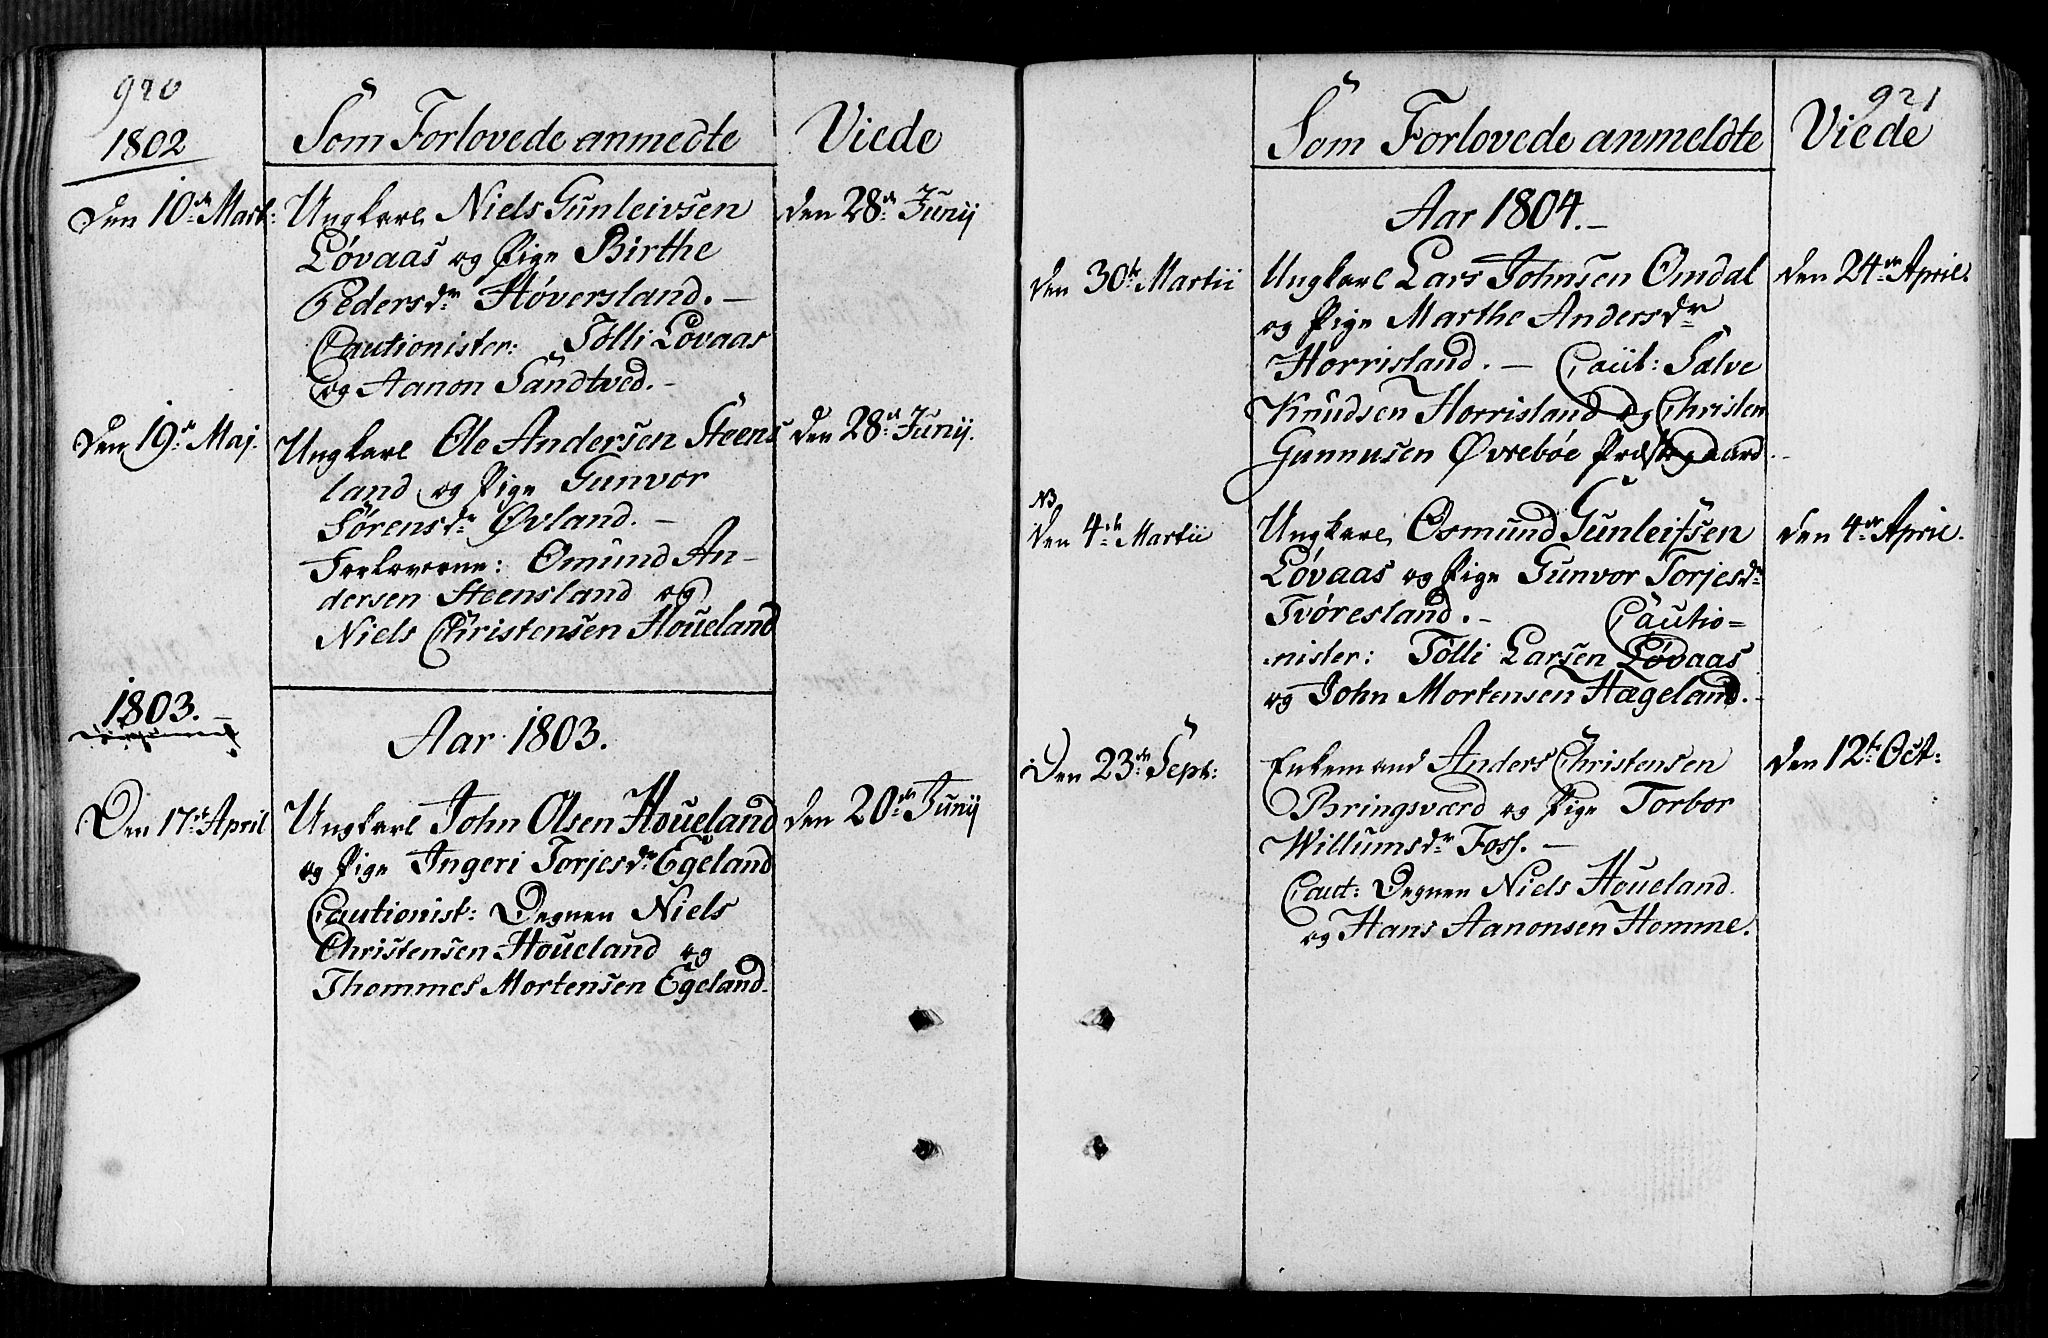 920
1802
Som Forlovede anmedte
Viede
Den 10de Mart:
Ungkarl Niels Gunleivsen
Løvaas og Pige Birthe
Pedersdr Høversland. –
Cautionister: Tølli Løvaas
og Aanon Sandtved. –
den 28de Junij
Den 19de Maj.
Ungkarl Ole Andersen Steens
land og Pige Gunvor
Sørensdr Øvland. –
Forloverne: Omund An–
dersen Steensland og
Niels Christensen Houeland
den 28de Junij.
1803. –
Aar 1803.
Den 17de April
Ungkarl John Olsen Houeland
og Pige Ingeri Torjesdr Egeland
Cautionist: Degnen Niels
Christensen Houeland og
Thommes Mortensen Egeland.
den 20de Junij
921
Som Forlovede anmeldte
Viede
Aar 1804. –
den 30te Martii
Ungkarl Lars Johnsen Omdal
og Pige Marthe Andersdr
Horrisland. – Caut: Salve
Knudsen Horrisland og Christen
Gunnusen Øvrebøe Præstegaard.
den 24de April.
NB
den 4de Martii
Ungkarl Osmund Gunleifsen
Løvaas og Pige Gunvor Torjesdr
Tvøresland. – Cautio=
nister: Tølli Larsen Løvaas
og John Mortensen Hægeland. –
den 4de April.
Den 23de Sept:
Enkemand Anders Christensen
Bringsværd og Pige Torbor
Willumsdr Foss. –
Caut: Degnen Niels Houeland
og Hans Aanonsen Homme.
den 12te Oct: